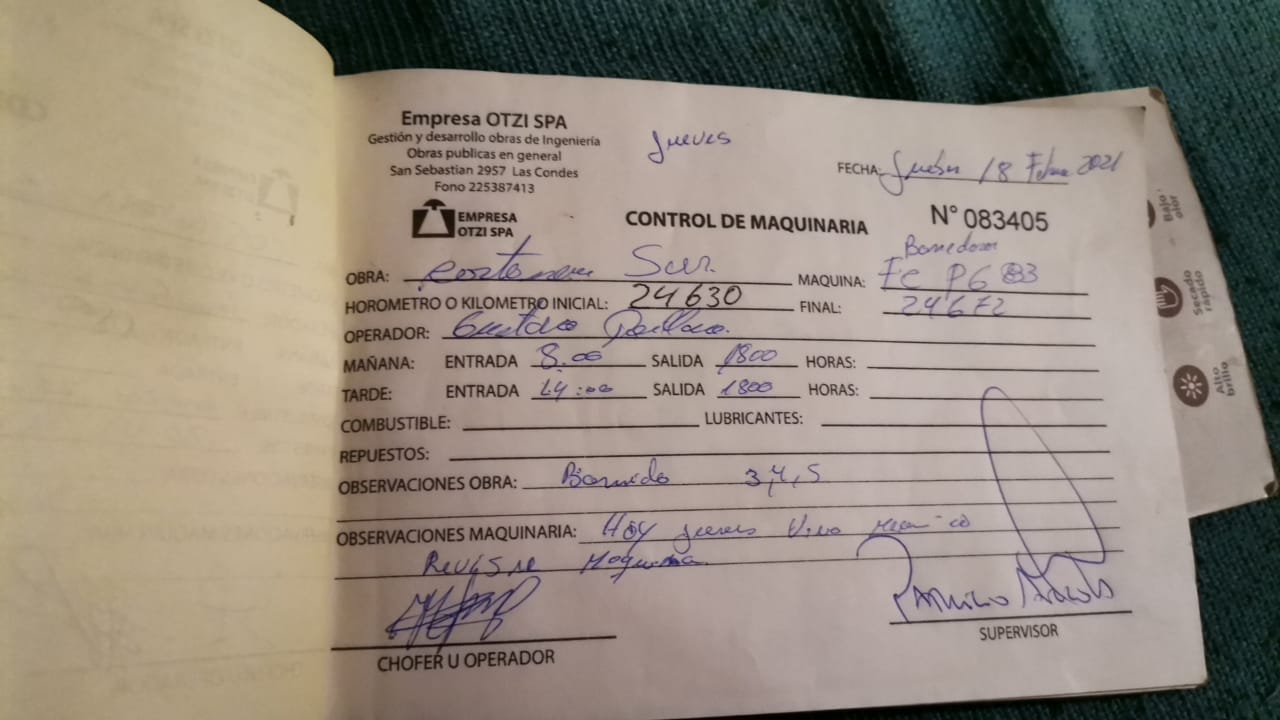 Empresa OTZI SPA
Gestión y desarrollo obras de Ingeniería
Obras publicas en general
San Sebastian 2957 Las Condes
Fono 225387413
Jueves
FECHA: 18 2021
EMPRESA
OTZI SPA
CONTROL DE MAQUINARIA
N° 083405
OBRA: Sur. MAQUINA:
HOROMETRO O KILOMETRO INICIAL: 24630 FINAL: 24672
OPERADOR: Gustavo
MAÑANA: ENTRADA 8.00 SALIDA 1800 HORAS:
TARDE: ENTRADA 14:00 SALIDA 1800 HORAS:
COMBUSTIBLE: LUBRICANTES:
REPUESTOS:
OBSERVACIONES OBRA: Barrido 3,4,5
OBSERVACIONES MAQUINARIA: Hoy jueves Vino mecanico
Maquina.
CHOFER U OPERADOR
SUPERVISOR
Bajo olor
Secado rápido
Alto brillo